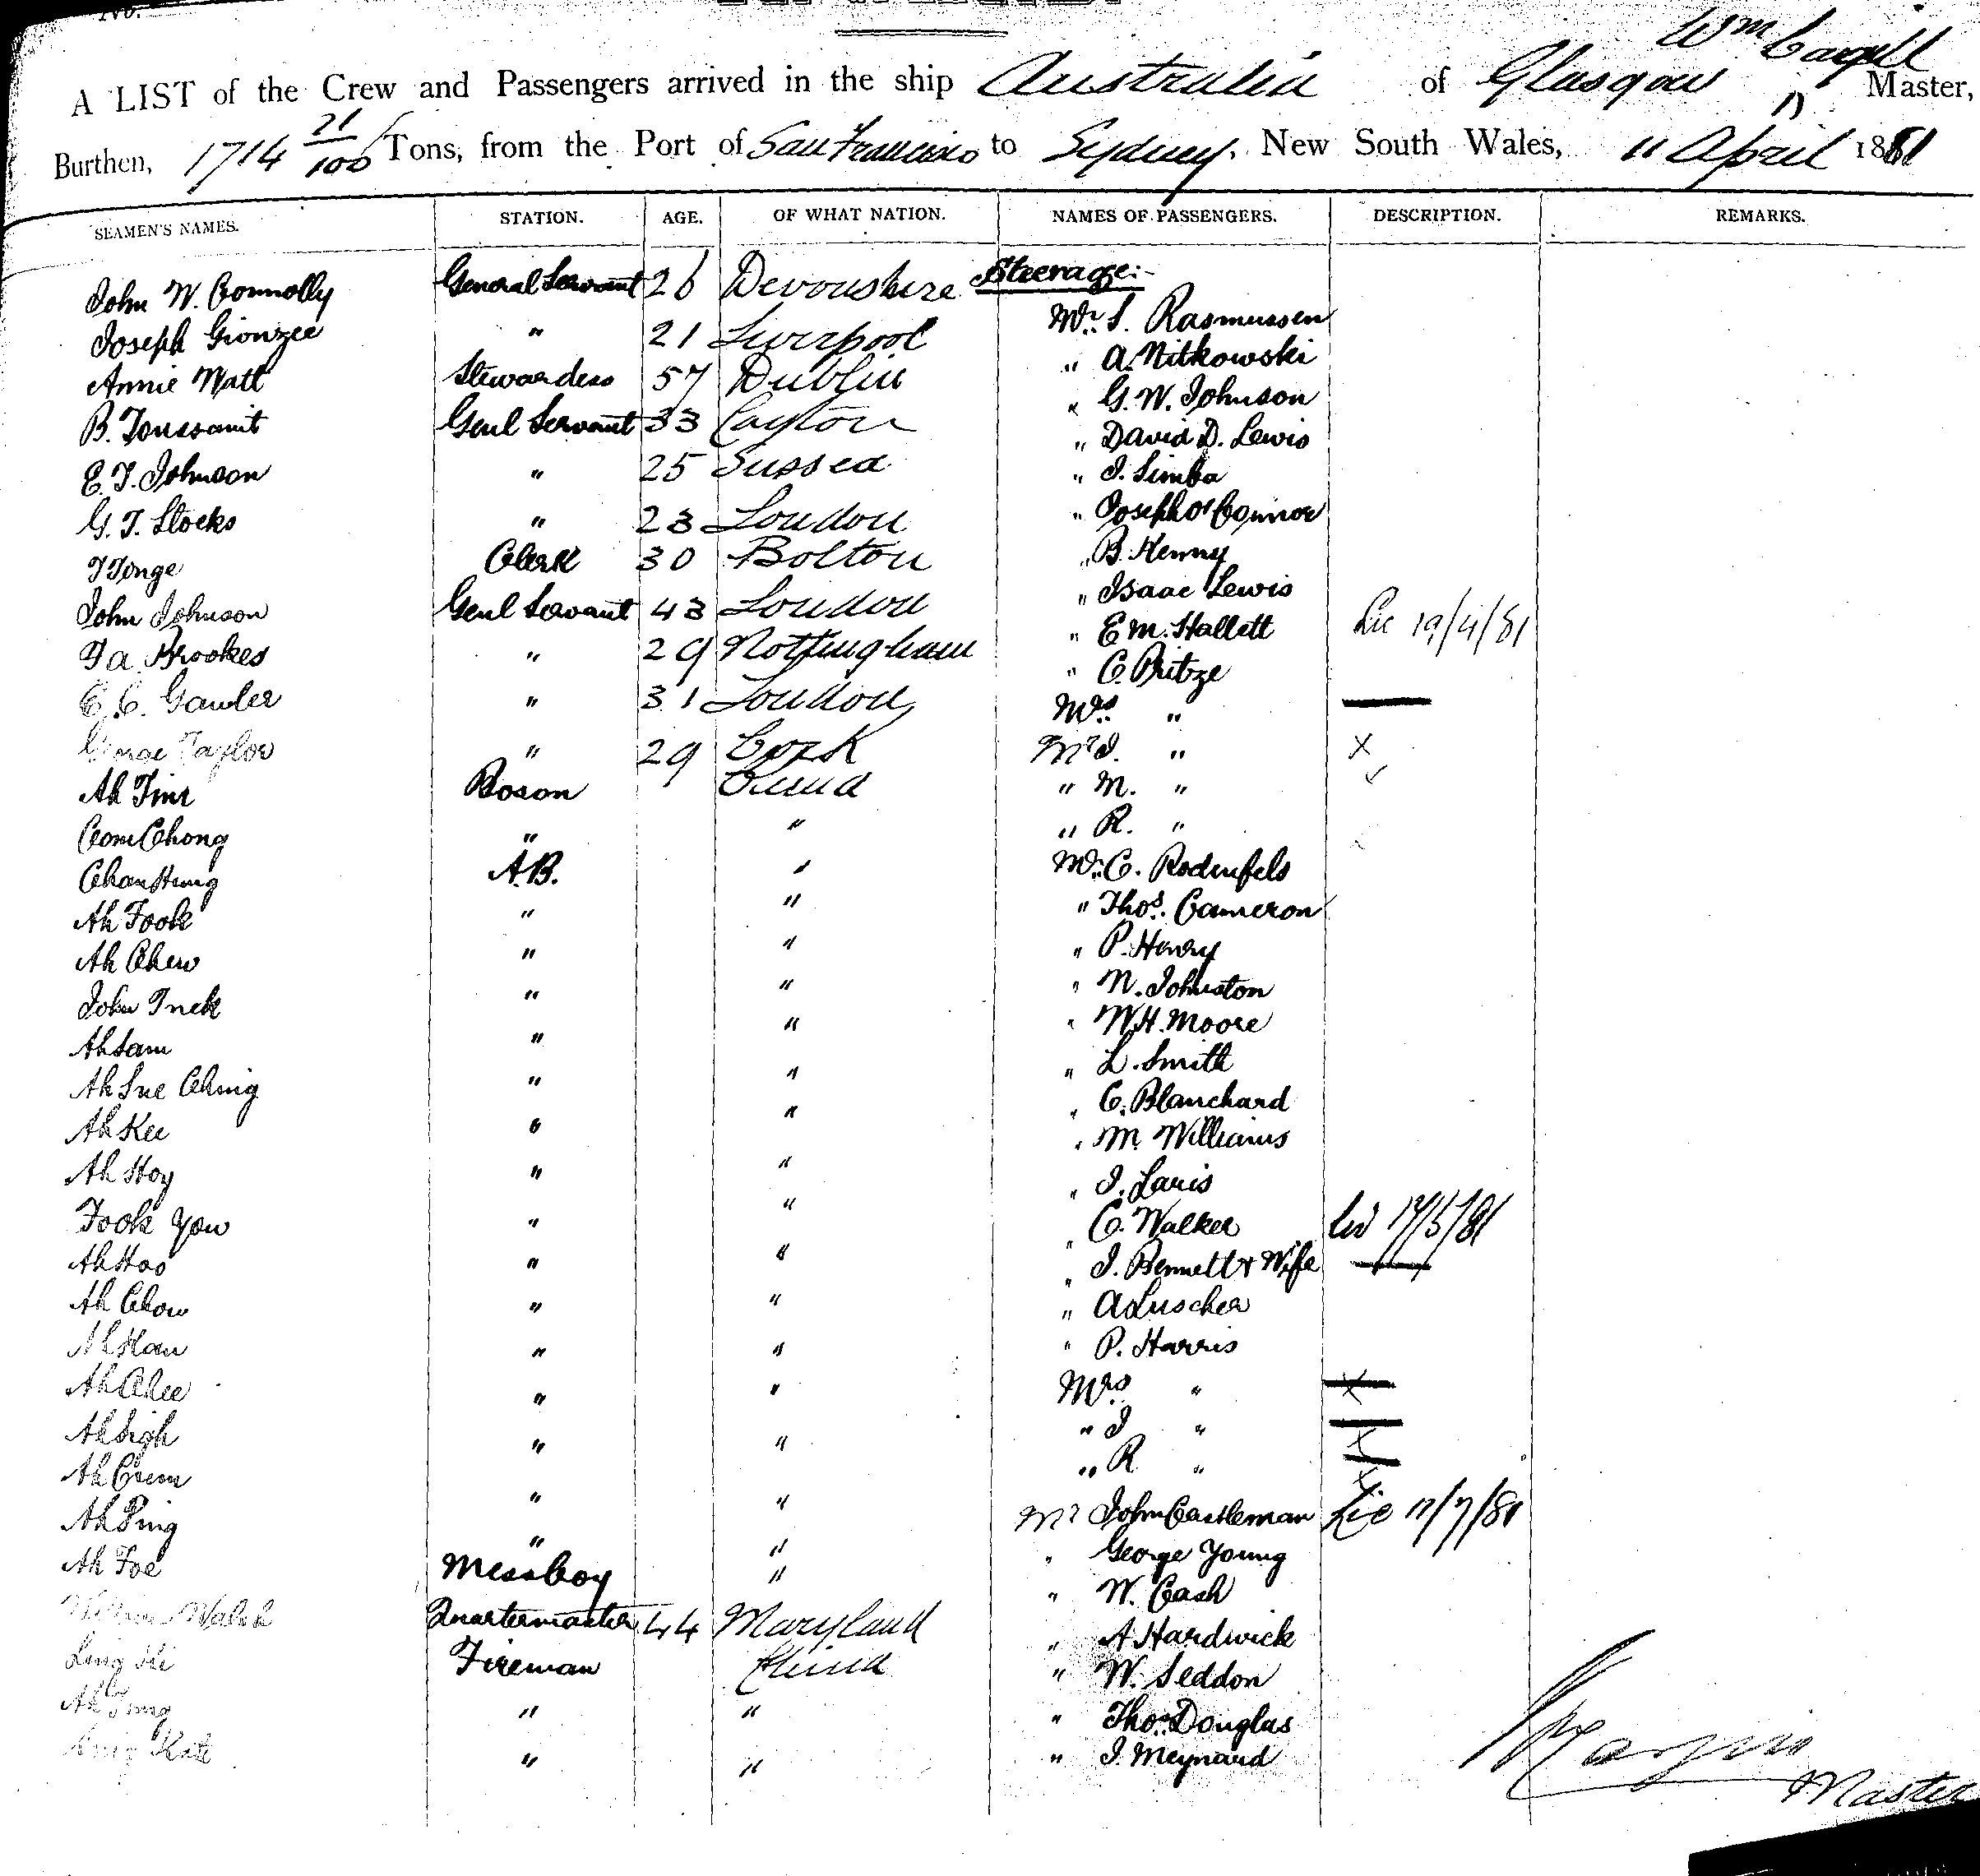 No.
Wm Cargill
A LIST of the Crew and Passengers arrived in the ship Australia of Glasgow Master,
Burthen, 1714 21/100 Tons, from the Port of San Francisco to Sydney, New South Wales, 11 April 1881
SEAMEN'S NAMES. STATION. AGE. OF WHAT NATION. NAMES OF PASSENGERS. DESCRIPTION. REMARKS.
Steerage:-
John W. Connolly General Servant 26 Devonshire Mr. S. Rasmussen
Joseph " 21 Liverpool " A. Nitkowski
Annie Watt Stewardess 57 Dublin " G. W. Johnson
B. Toussaint Genl Servant 33 " David D. Lewis
E. T. Johnson " 25 Sussex " J. Simba
G. T. Stocks " 23 London " Joseph O'Connor
T Tonge Clerk 30 Bolton " B. Kenny
John Johnson Genl Servant 43 London " Isaac Lewis
T a. Brookes " 29 Nottingham " E M. Hallett 19/4/81
E. C. Gawler " 31 London " C. Britze
George Taylor " 29 Cork Mrs. " 
Ah Bosun China Mr J. " X
Chong " " " M. "
Chan Hung A.B. " " R. "
Ah Fook " " Mr. C. Rodenfels
Ah Chew " " " Thos. Cameron
John " " " P. Henry
Ah Sam " " " N. Johnston
Ah Sue Ching " " " W. H. Moore
Ah Kee " " " L. Smith
Ah Hoy " " " C. Blanchard
Fook You " " " M. Williams
Ah Hoo " " " J. Laris
Ah Chow " " " C. Walker 17/5/81
Ah Han " " " J. Bennett & Wife
Ah Chee " " " A Luscher
Ah Sigh " " " P. Harris
Ah " " Mrs. " X
Ah Ping " " " J "
Ah Foe Mess boy " " R "
Walsh Quartermaster 44 Maryland Mr John Castleman 11/7/81
Ling Fireman China " George Young
Ah " " " W. Cash
" " " A Hardwick
" W. Seddon
" Thos. Douglas
" J. Meynard
Master